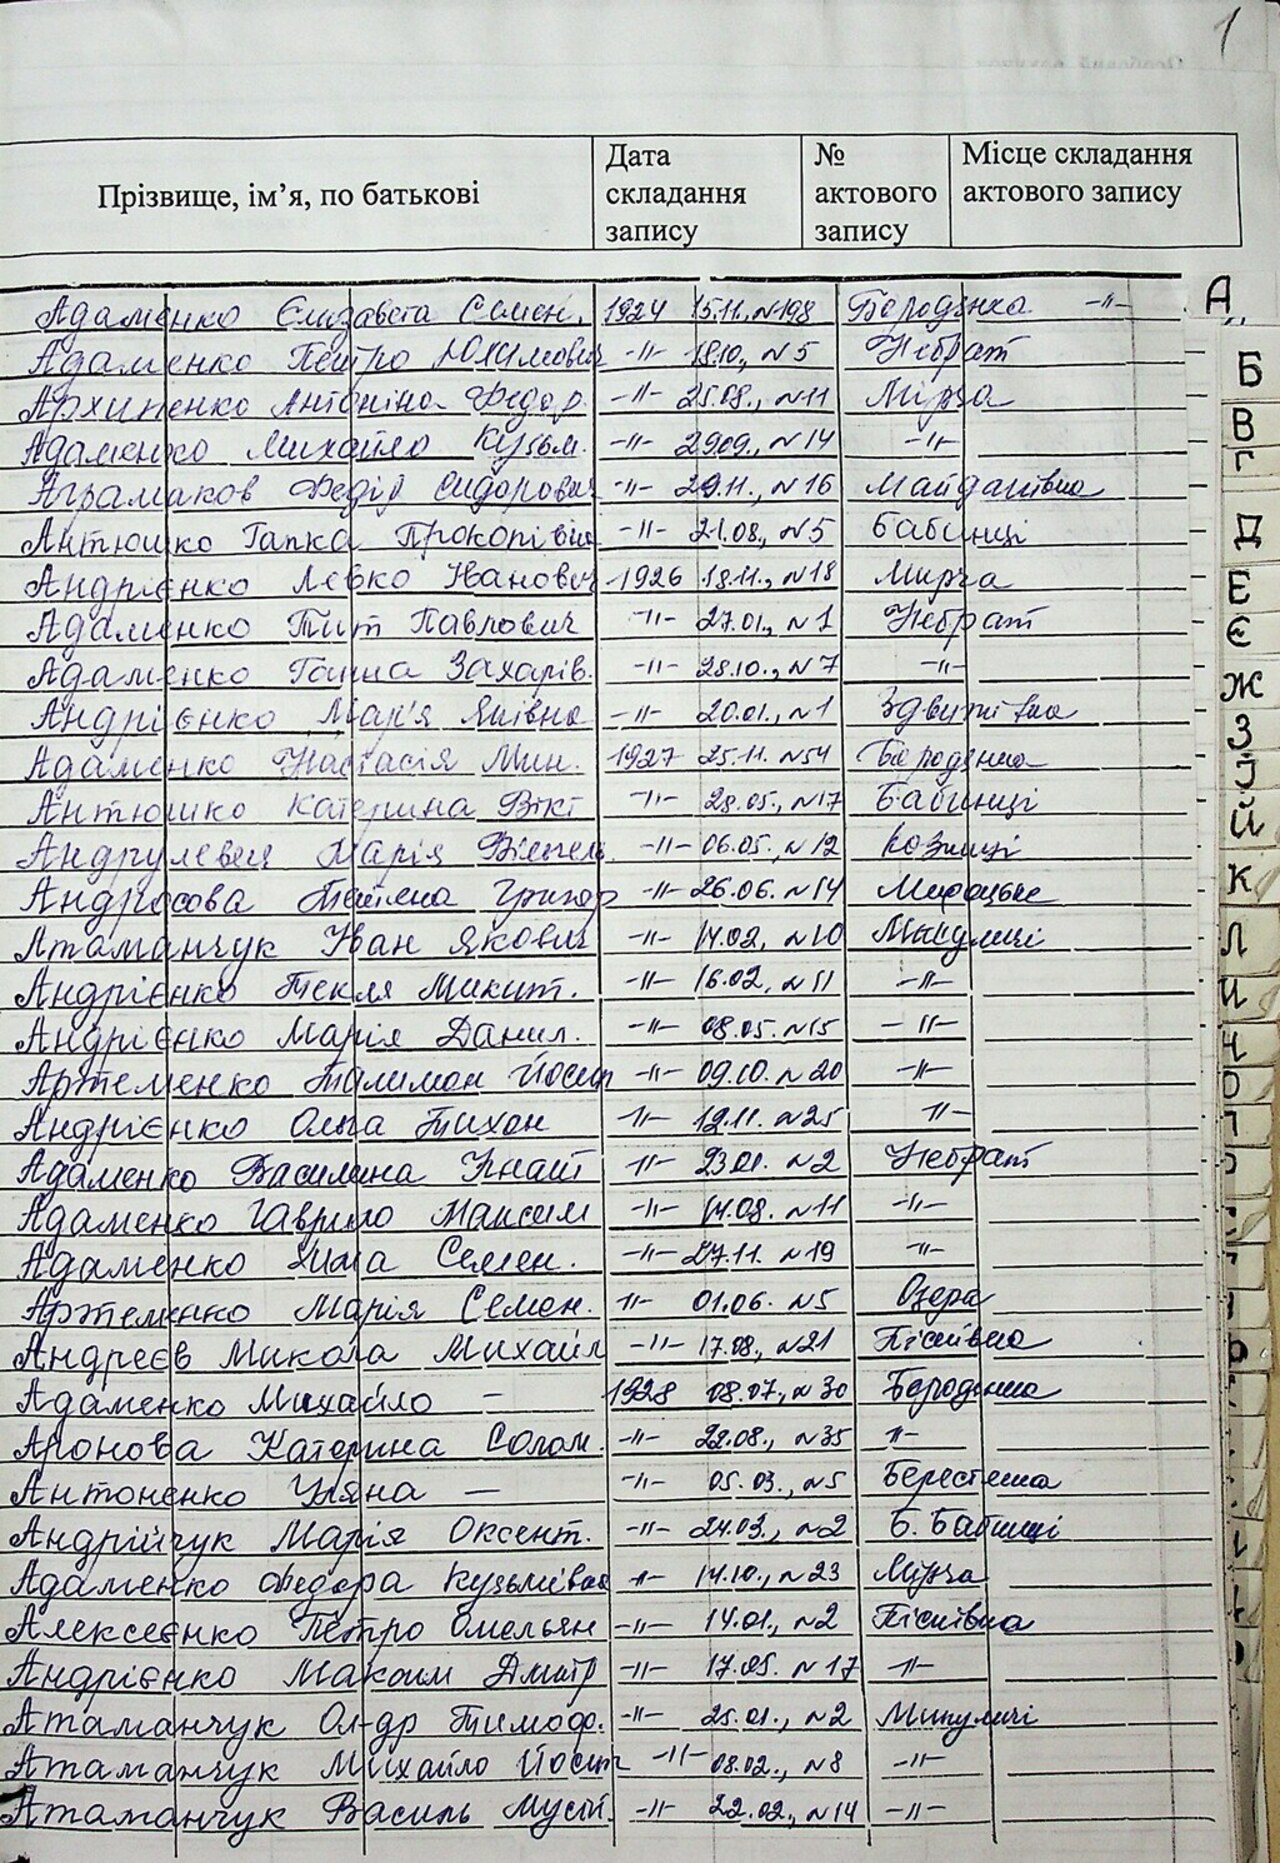 1
Прізвище, ім’я, по батькові
Дата складання запису
№ актового запису
Місце складання актового запису
Адаменко Єлизавета Семен. 1924 15.11. №198 Бородянка -"-
Адаменко Петро Юхимович -"- 18.10., №5 Небрат
Архипенко Антоніна Федор. -"- 25.08., №11 Мірча
Адаменко Михайло Кузьм. -"- 29.09., №14 -"-
Аграмаков Федір Сидорович -"- 29.11., №16 Майданівка
Антюшко Гапка Прокопівна -"- 21.08., №5 Бабинці
Андрієнко Левко Іванович 1926 18.11., №18 Мирча
Адаменко Тит Павлович -"- 27.01., №1 Небрат
Адаменко Ганна Захарів. -"- 28.10., №7 -"-
Андрієнко Мар'я Яківна -"- 20.01., №1 Здвижівка
Адаменко Настасія Мик. 1927 25.11. №54 Бородянка
Антюшко Катерина Вікт -"- 28.05., №17 Бабинці
Марія -"- 06.05., №12 Козинці
Андросова Тетяна Григор -"- 26.06. №14 Мироцьке
Атаманчук Іван Якович -"- 14.02, №10 Микуличі
Андрієнко Текля Микит. -"- 16.02, №11 -"-
Андрієнко Марія Данил. -"- 08.05. №15 -"-
Артеменко Талимон Йосип -"- 09.10. №20 -"-
Андрієнко Ольга Тихон -"- 12.11. №25 -"-
Адаменко Василина Ігнат -"- 23.01. №2 Небрат
Адаменко Гаврило Максим -"- 14.08. №11 -"-
Адаменко Хима Семен. -"- 27.11. №19 -"-
Артеменко Марія Семен. -"- 01.06. №5 Озера
Андреєв Микола Михайл -"- 17.08., №21 Пісківка
Адаменко Михайло — 1928 08.07., №30 Бородянка
Аронова Катерина Солом. -"- 22.08., №35 -"-
Антоненко Уляна — -"- 05.03., №5 Берестянка
Андрійчук Марія Оксент. -"- 24.03., №2 Б. Бабинці
Адаменко Федора Кузьмівна -"- 14.10., №23 Мірча
Алексеєнко Петро Омельян -"- 14.01., №2 Пісківка
Андрієнко Максим Дмитр -"- 17.05. №17 -"-
Атаманчук Ол-др Тимоф. -"- 25.01., №2 Микуличі
Атаманчук Михайло Йосип -"- 08.02., №8 -"-
Атаманчук Василь Мусій. -"- 22.02., №14 -"-
А
Б
В
Г
Д
Е
Є
Ж
З
І
Й
К
Л